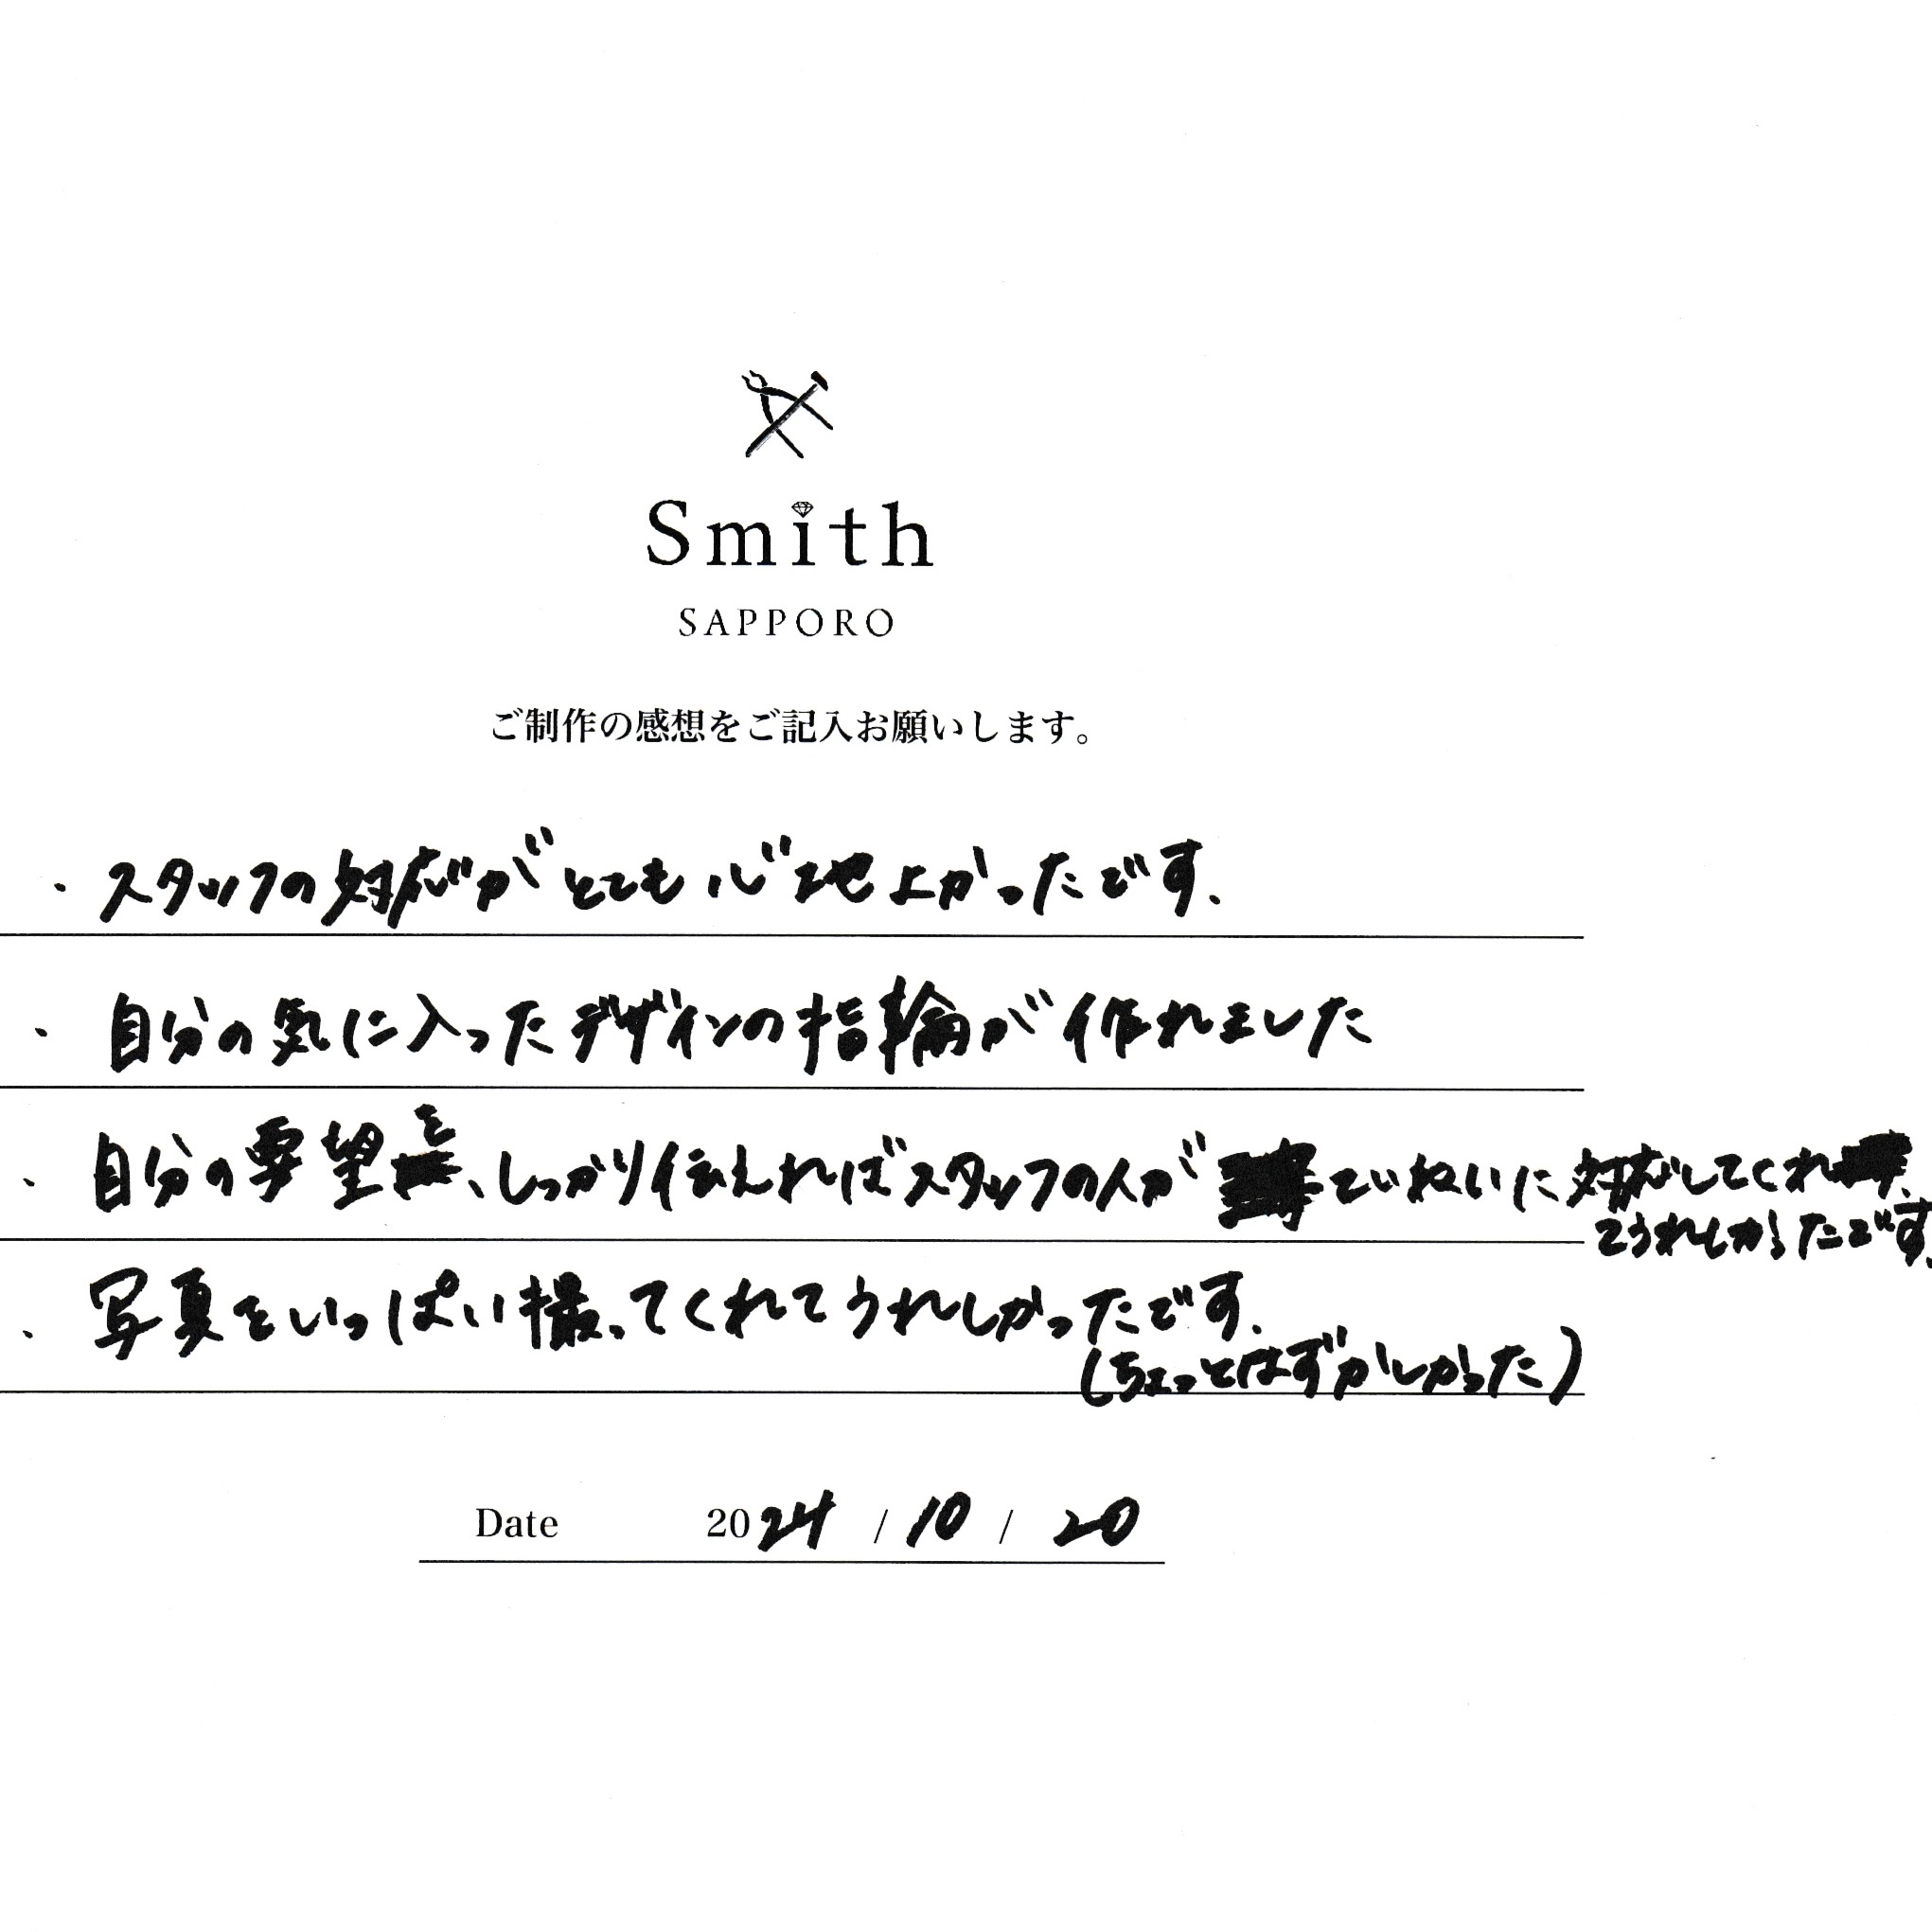 Smith
SAPPORO
ご制作の感想をご記入お願いします。
・スタッフの対応がとても心地上かったです.
・自分の気に入ったデザインの指輪が作れました
・自分の要望を、しっかり伝えればスタッフの人がていねいに対応してくれ
てうれしかったです.
・写真をいっぱい撮ってくれてうれしかったです.
(ちょっとはずかしかった)
Date 2024 / 10 / 20